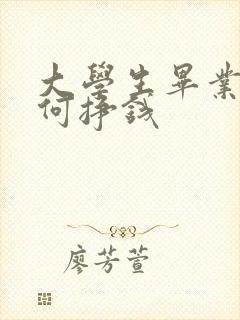 大學生畢業
何掙錢
廖芳萱